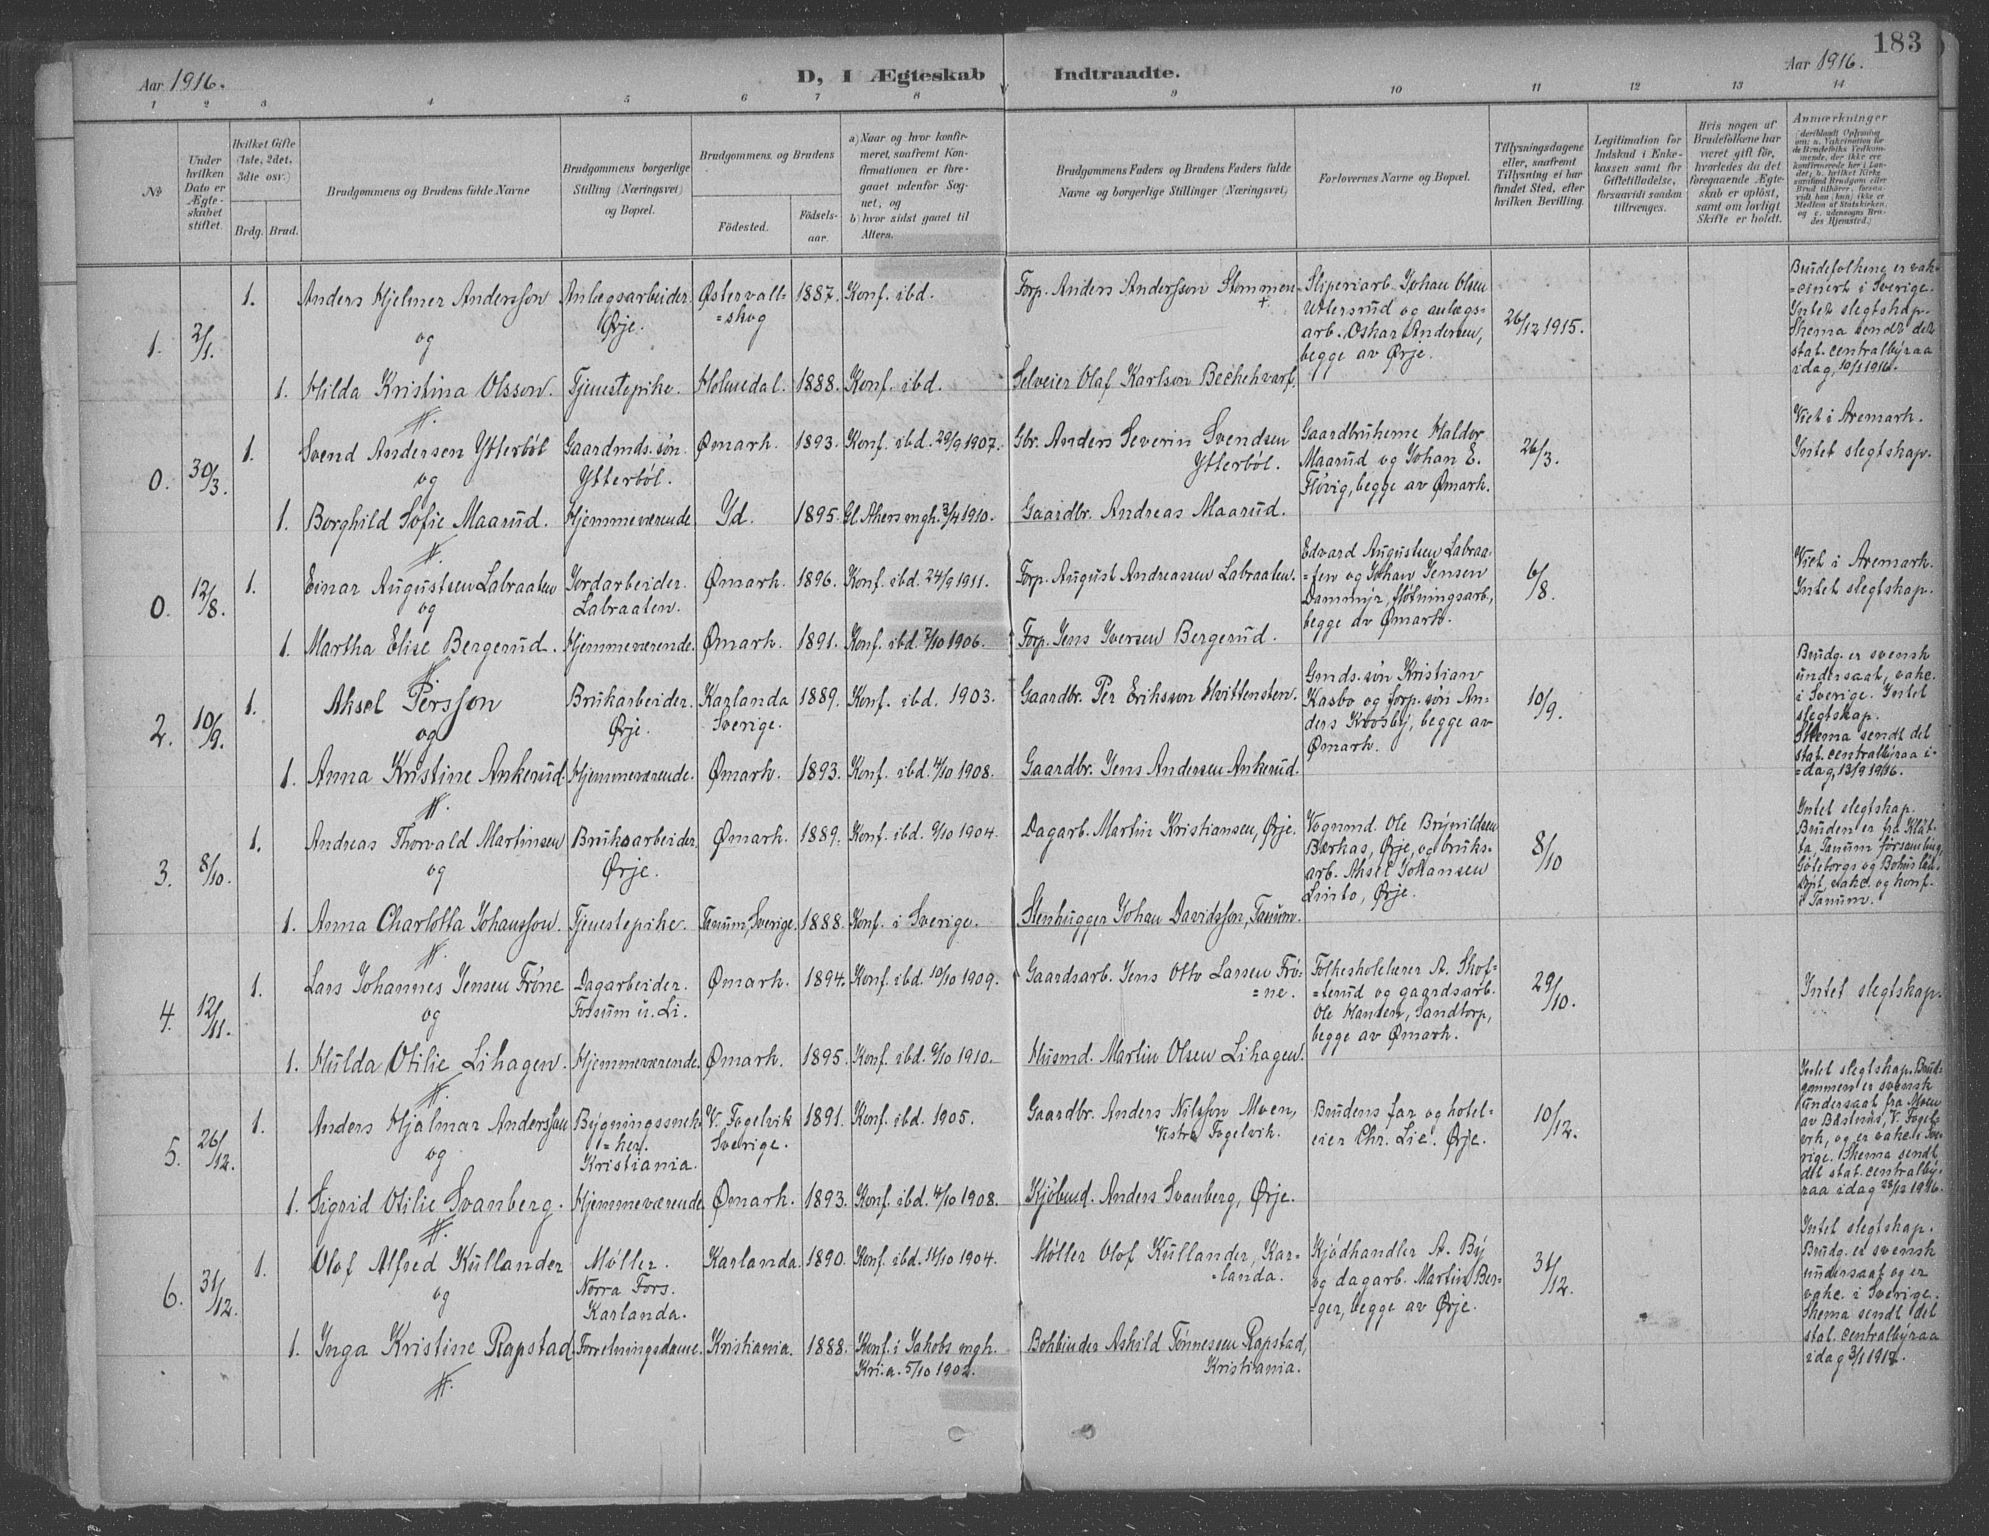 183
Aar 1916.
D, I Ægteskab Indtraadte.
Aar 1916.
1 2 3 4 5 6 7 8 9 10 11 12 13 14
No
Under hvilken Dato er Ægteskabet stiftet.
Hvilket Gifte (1ste, 2det, 3die osv.)
Brdg. Brud.
Brudgommens og Brudens fulde Navne
Brudgommens borgerlige Stilling (Næringsvei) og Bopæl.
Brudgommens og Brudens
Fødested.
Fødselsaar.
a) Naar og hvor konfirmeret, saafremt Konfirmationen er foregaaet udenfor Sognet, og
b) hvor sidst gaaet til Alters.
Brudgommens Faders og Brudens Faders fulde Navne og borgerlige Stillinger (Næringsvei)
Forlovernes Navne og Bopæl.
Tillysningsdagene eller, saafremt Tillysning ei har fundet Sted, efter hvilken Bevilling.
Legitimation for Indskud i Enkekassen samt for Giftetilladelse, forsaavidt saadan tiltrænges.
Hvis nogen af Brudefolkene har været gift før, hvorledes da det foregaaende Ægteskab er opløst, samt om lovligt Skifte er holdt.
Anmærkninger
1. 2/1. 1. Anders Hjelmer Andersson
og
Anlægsarbeider. Ørje.
Østervallskog 1887. Konf. ibd.
Forp. Anders Andersson Stommen +
Sliperiarb. Johan Olsen
Utlersrud og anlægs-
arb. Oskar Andersen,
begge av Ørje.
26/12 1915.
Brudefolkene er vak-
=cinert i Sverige.
Intet slegtskap.
Skema sendt det
stat. centralbyraa
idag, 10/1 1916.
1. Hilda Kristina Olsson. Tjenestepike. Holmedal. 1888. Konf. ibd.
Selveier Olaf Karlson Beckehvarf.
0. 30/3. 1. Svend Andersen Ytterböl
og
Gaardmds. søn Ytterböl.
Ømark. 1893. Konf. ibd. 29/9 1907.
Gbr. Anders Severin Svendsen
Ytterböl.
Gaardbrukerne Haldor
Maarud og Johan E.
Flövig, begge av Ømark.
26/3.
Viet i Aremark.
Intet slegtskap.
1. Borghild Sofie Maarud. Hjemmeværende Yd. 1895. Gl. Akers mgh. 3/4 1910.
Gaardbr. Andreas Maarud.
0. 12/8. 1. Einar Augustsen Labraaten
og
Jordarbeider. Labraaten.
Ømark. 1896. Konf. ibd. 24/9 1911.
Forp. August Andreassen Labraaten.
Edvard Augustsen Labraa-
=ten og Johan Jensen
Dammyr, fløtningsarb,
begge av Ømark.
6/8.
Viet i Aremark.
Intet slegtskap.
1. Martha Elise Bergerud. Hjemmeværende. Ømark. 1891. Konf. ibd. 7/10 1906.
Forp. Jens Iversen Bergerud.
2. 10/9. 1. Aksel Persson
og
Brukarbeider. Ørje.
Karlanda Sverige. 1889. Konf. ibd. 1903.
Gaardbr. Per Eriksson Hvittensten.
Gmds. søn Kristian
Kasbo og forp. søn An-
ders Krosby, begge av
Ømark.
10/9.
Brudg. er svensk
undersaat, vakc.
i Sverige. Intet
slegtskap.
Skema sendt det
stat. centralbyraa i-
=dag, 13/9 1916.
1. Anna Kristine Ankerud. Hjemmeværende. Ømark. 1893. Konf. ibd. 4/10 1908.
Gaardbr. Jens Andersen Ankerud.
3. 8/10. 1. Andreas Thorvald Martinsen
og
Bruksarbeider. Ørje.
Ømark. 1889. Konf. ibd. 9/10 1904.
Dagarb. Martin Kristiansen, Ørje.
Vognmd. Ole Brynildsen
Bærkas, Ørje, og bruks-
arb. Aksel Johansen
Linto, Ørje.
8/10
Intet slegtskap.
Bruden er fra
Tanum församling,
Göteborgs og Bohus län.
vakc. og konf.
i Tanum.
1. Anna Charlotta Johansson. Tjenestepike. Tanum, Sverige. 1888. Konf. i Sverige.
Stenhugger Johan Davidsson, Tanum.
4. 12/11. 1. Lars Johannes Jensen Fröne
og
Dagarbeider. Fossum u. Li.
Ømark. 1894. Konf. ibd. 10/10 1909.
Gaardsarb. Jens Otto Larsen Frö-
=ne.
Folkeskolelærer A. Skof-
=terud og gaardsarb.
Ole Hansen, Sandtorp,
begge av Ømark.
29/10.
Intet slegtskap.
1. Hulda Otilie Lihagen. Hjemmeværende. Ømark. 1895. Konf. ibd. 9/10 1910.
Husmd. Martin Olsen Lihagen.
5. 26/12. 1. Anders Hjalmar Andersson
og
Bygningssnek-
=ker.
Kristiania.
V. Fogelvik Sverige. 1891. Konf. ibd. 1905.
Gaardbr. Anders Nilsson Moen,
Vestra Fogelvik.
Brudens far og hotel-
eier Chr. Lie. Ørje.
10/12.
Intet slegtskap. Brud-
gommen er svensk
undersaat fra Moen
av Båstnäs, V. Fogel-
vik, og er vakc. i Sve-
rige. Skema sendt
det stat. centralby-
raa idag 28/12 1916.
1. Sigrid Otilie Svanberg. Hjemmeværende Ømark. 1893. Konf. ibd. 4/10 1908.
Kjöbmd. Anders Svanberg, Ørje.
6. 31/12. 1. Olof Alfred Kullander
og
Møller. Norra Fors. Karlanda.
Karlanda. 1890. Konf. ibd. 14/10 1904.
Møller Olof Kullander, Kar-
=landa.
Kjödhandler A. By
og dagarb. Martin Ber-
=ger, begge av Ørje.
31/12.
Intet slegtskap.
Brudg. er svensk
undersaat og er
vakc. i Sverige.
Skema sendt det
stat. centralbyraa
idag 3/1 1917.
1. Inga Kristine Rapstad. Forretningsdame. Kristiania. 1888. Konf. i Jakobs mgh.
Kri:a. 5/10 1902.
Bokbinder Askild Tønnesen Rapstad,
Kristiania.